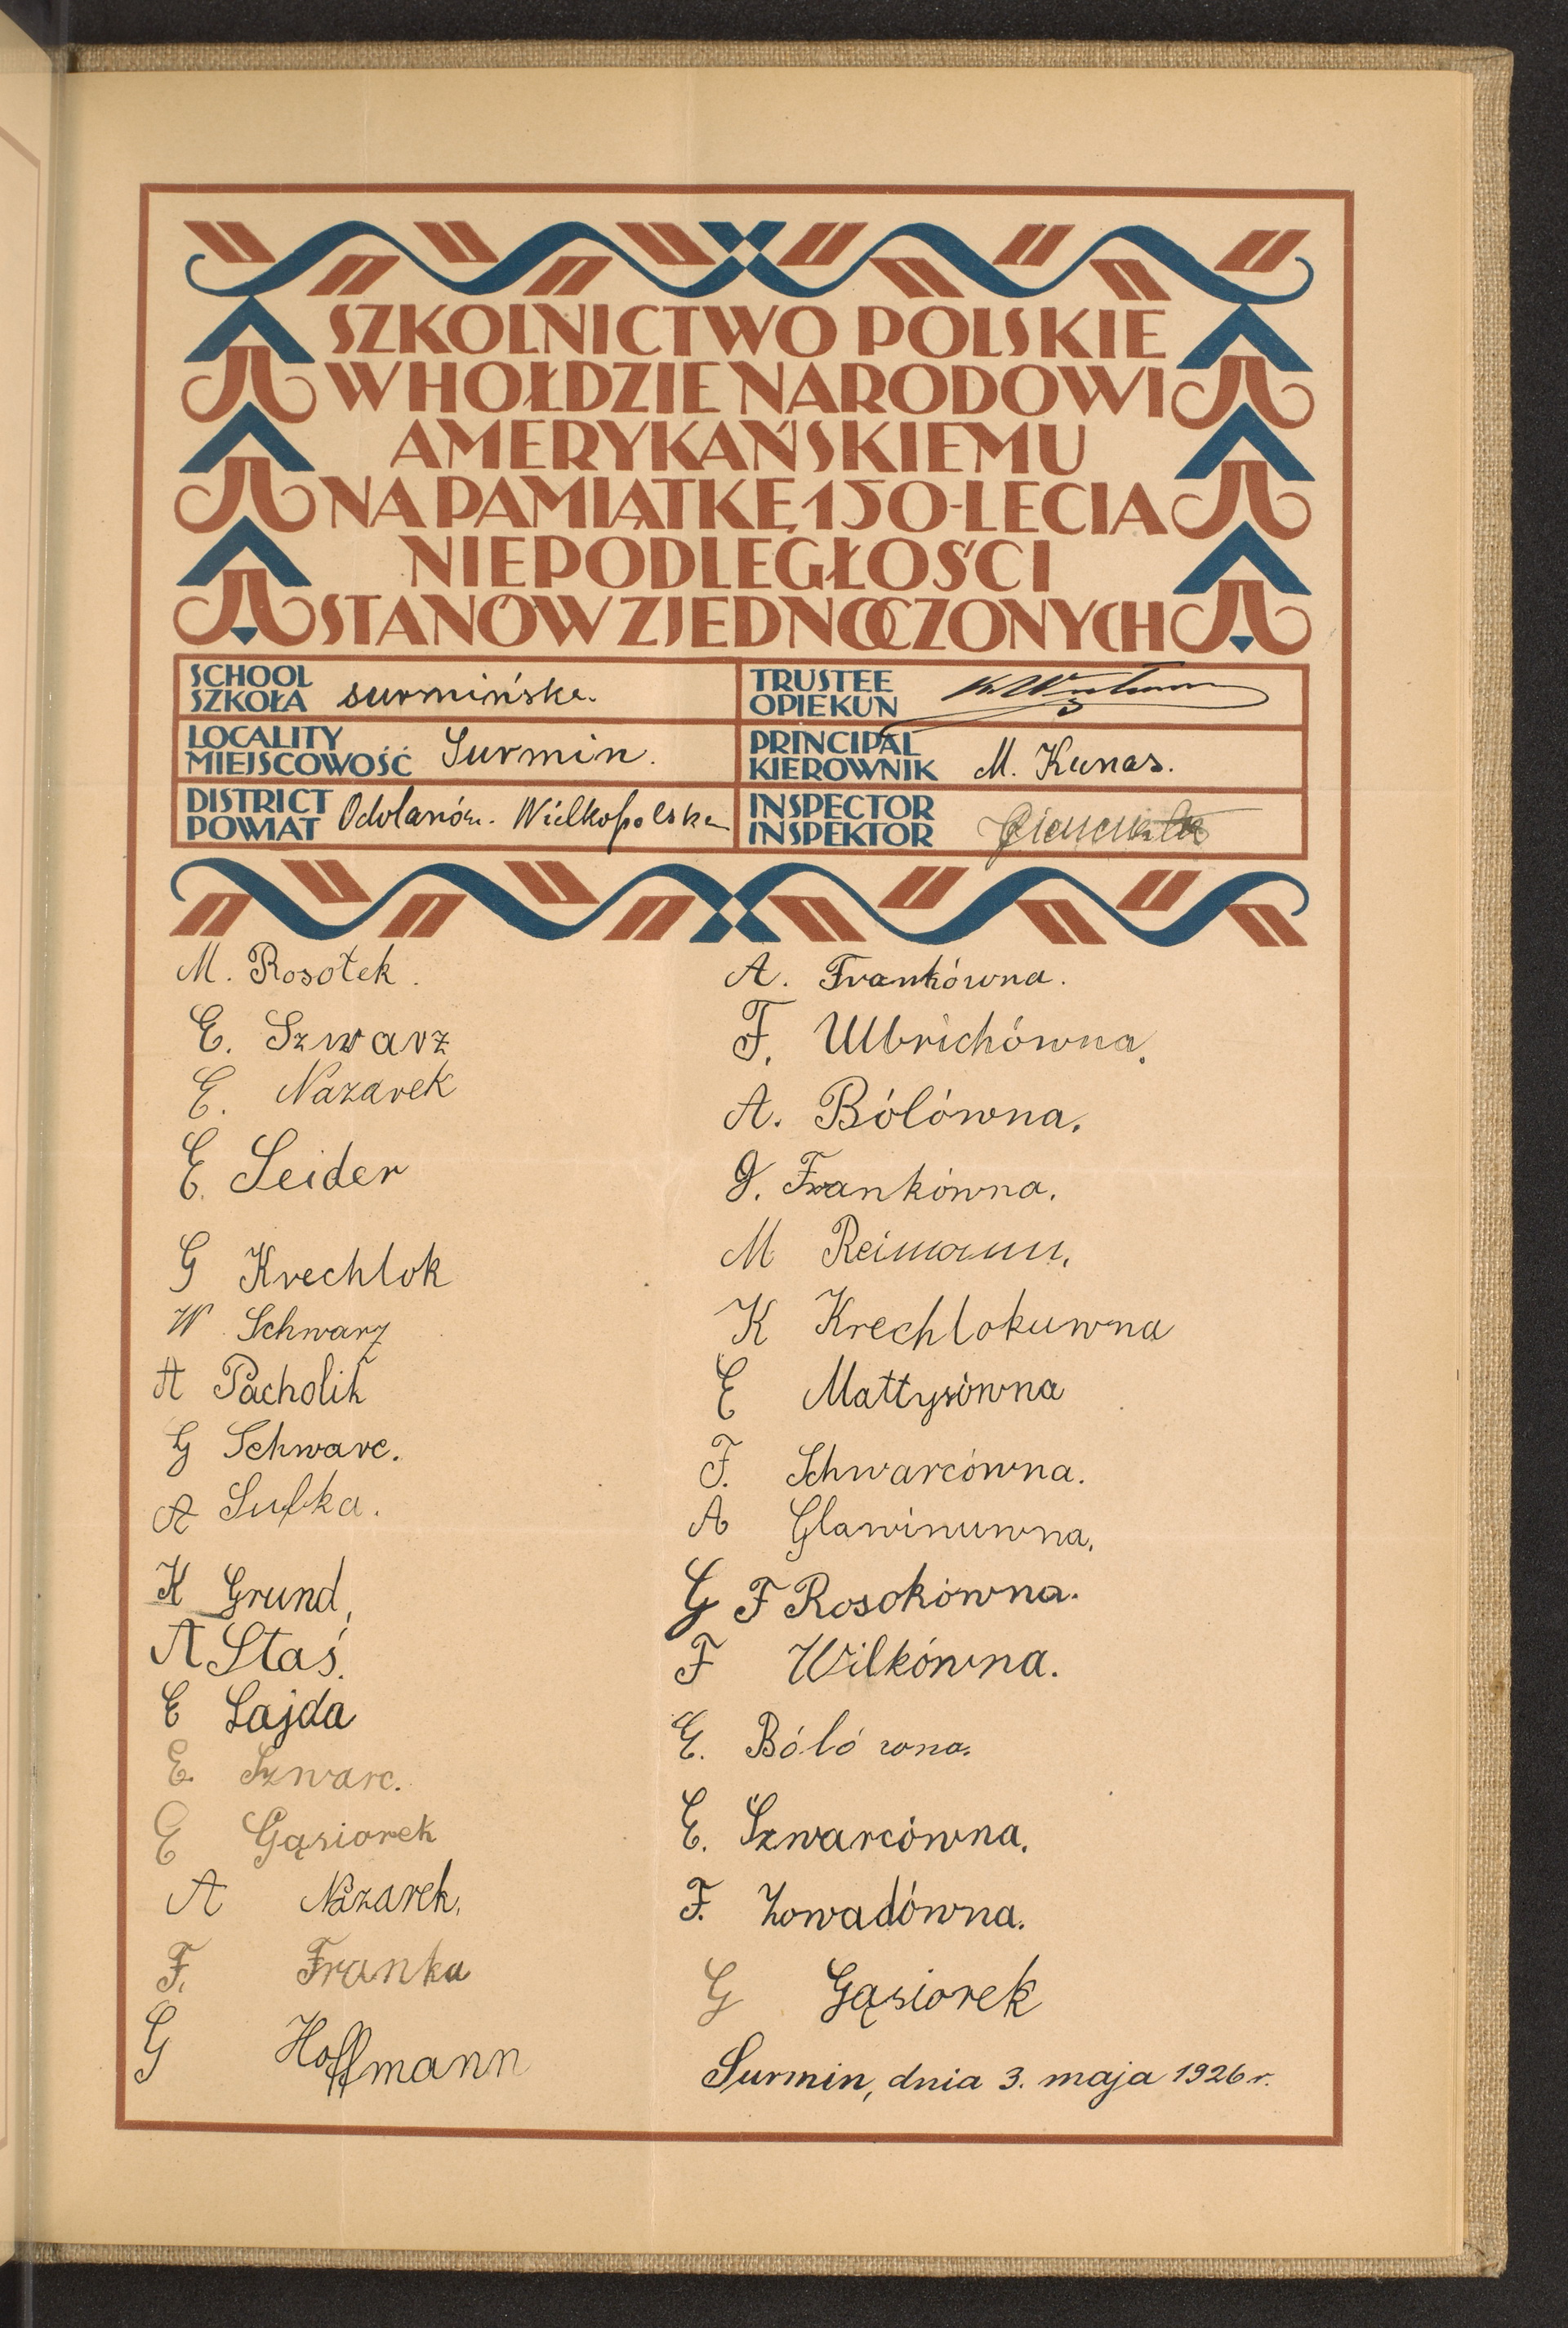 SZKOLNICTWO POLSKIE
W HOŁDZIE NARODOWI
AMERYKAŃSKIEMU
NA PAMIĄTKĘ 150-LECIA
NIEPODLEGŁOŚCI
STANÓW ZJEDNOCZONYCH
SCHOOL
SZKOŁA surmińska.
TRUSTEE
OPIEKUN
LOCALITY
MIEJSCOWOŚĆ Surmin.
PRINCIPAL
KIEROWNIK M. Kunas.
DISTRICT
POWIAT Odolanów. Wielkopolska
INSPECTOR
INSPEKTOR
M. Rosotek.
E. Szwarz
E. Nazarek
E. Seider
G Krechlok
W Schwarz
A Pacholik
G Schwarc.
A Sufka.
K Grund,
A Staś.
E Lajda
E. Szwarc.
E Gąsiorek
A Nazarek.
F. Franka
G Hoffmann
A. Frankówna.
F. Ulbrichówna.
A. Bólówna.
G. Frankówna.
M Reimann.
K Krechlokuwna
E Mattysówna
F. Schwarcówna.
A Glawinuwna.
G F Rosokówna.
F Wilkówna.
E. Bólówna.
E. Szwarcówna.
F. Zowadówna.
G Gąsiorek
Surmin, dnia 3. maja 1926 r.